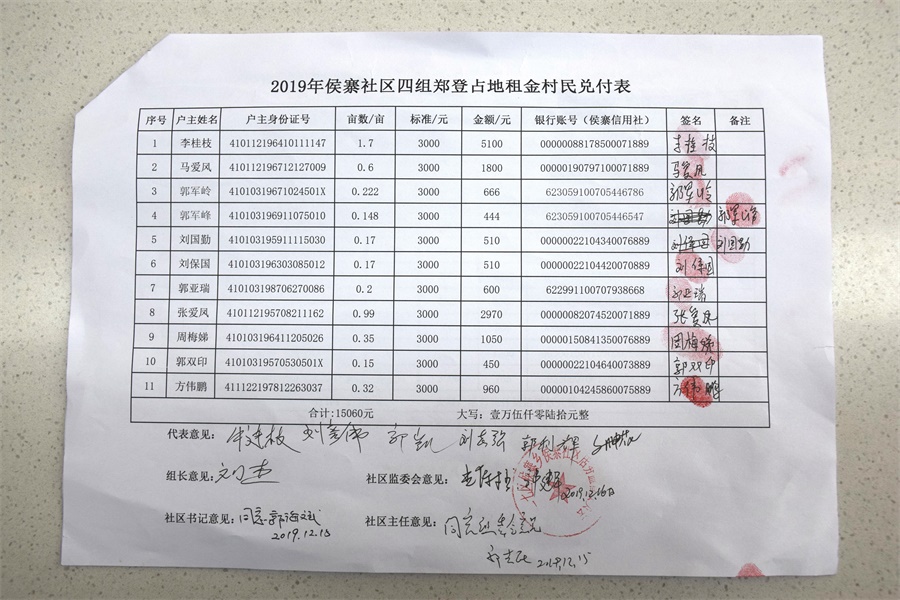 2019年侯寨社区四组郑登占地租金村民兑付表
序号 户主姓名 户主身份证号 亩数/亩 标准/元 金额/元 银行账号（侯寨信用社） 签名 备注
1 李桂枝 410112196410111147 1.7 3000 5100 00000088178500071889 李桂枝
2 马爱风 410112196712127009 0.6 3000 1800 00000190797100071889 马爱风
3 郭军岭 41010319671024501X 0.222 3000 666 623059100705446786 郭军岭
4 郭军峰 410103196911075010 0.148 3000 444 623059100705446547 郭军峰
5 刘国勤 410103195911115030 0.17 3000 510 00000022104340076889 刘保国 刘国勤
6 刘保国 410103196303085012 0.17 3000 510 00000022104420070889 刘保国
7 郭亚瑞 410103198706270086 0.2 3000 600 622991100707938668 郭亚瑞
8 张爱凤 410112195708211162 0.99 3000 2970 00000082074520071889 张爱凤
9 周梅娣 410103196411205026 0.35 3000 1050 00000150841350076889 周梅娣
10 郭双印 41010319570530501X 0.15 3000 450 00000022104640073889 郭双印
11 方伟鹏 411122197812263037 0.32 3000 960 00000104245860075889 方伟鹏
合计:15060元 大写：壹万伍仟零陆拾元整
代表意见：
组长意见： 社区监委会意见： 2019.12.16日
社区书记意见：同意 郭海斌 社区主任意见：
2019.12.13
2019.12.15